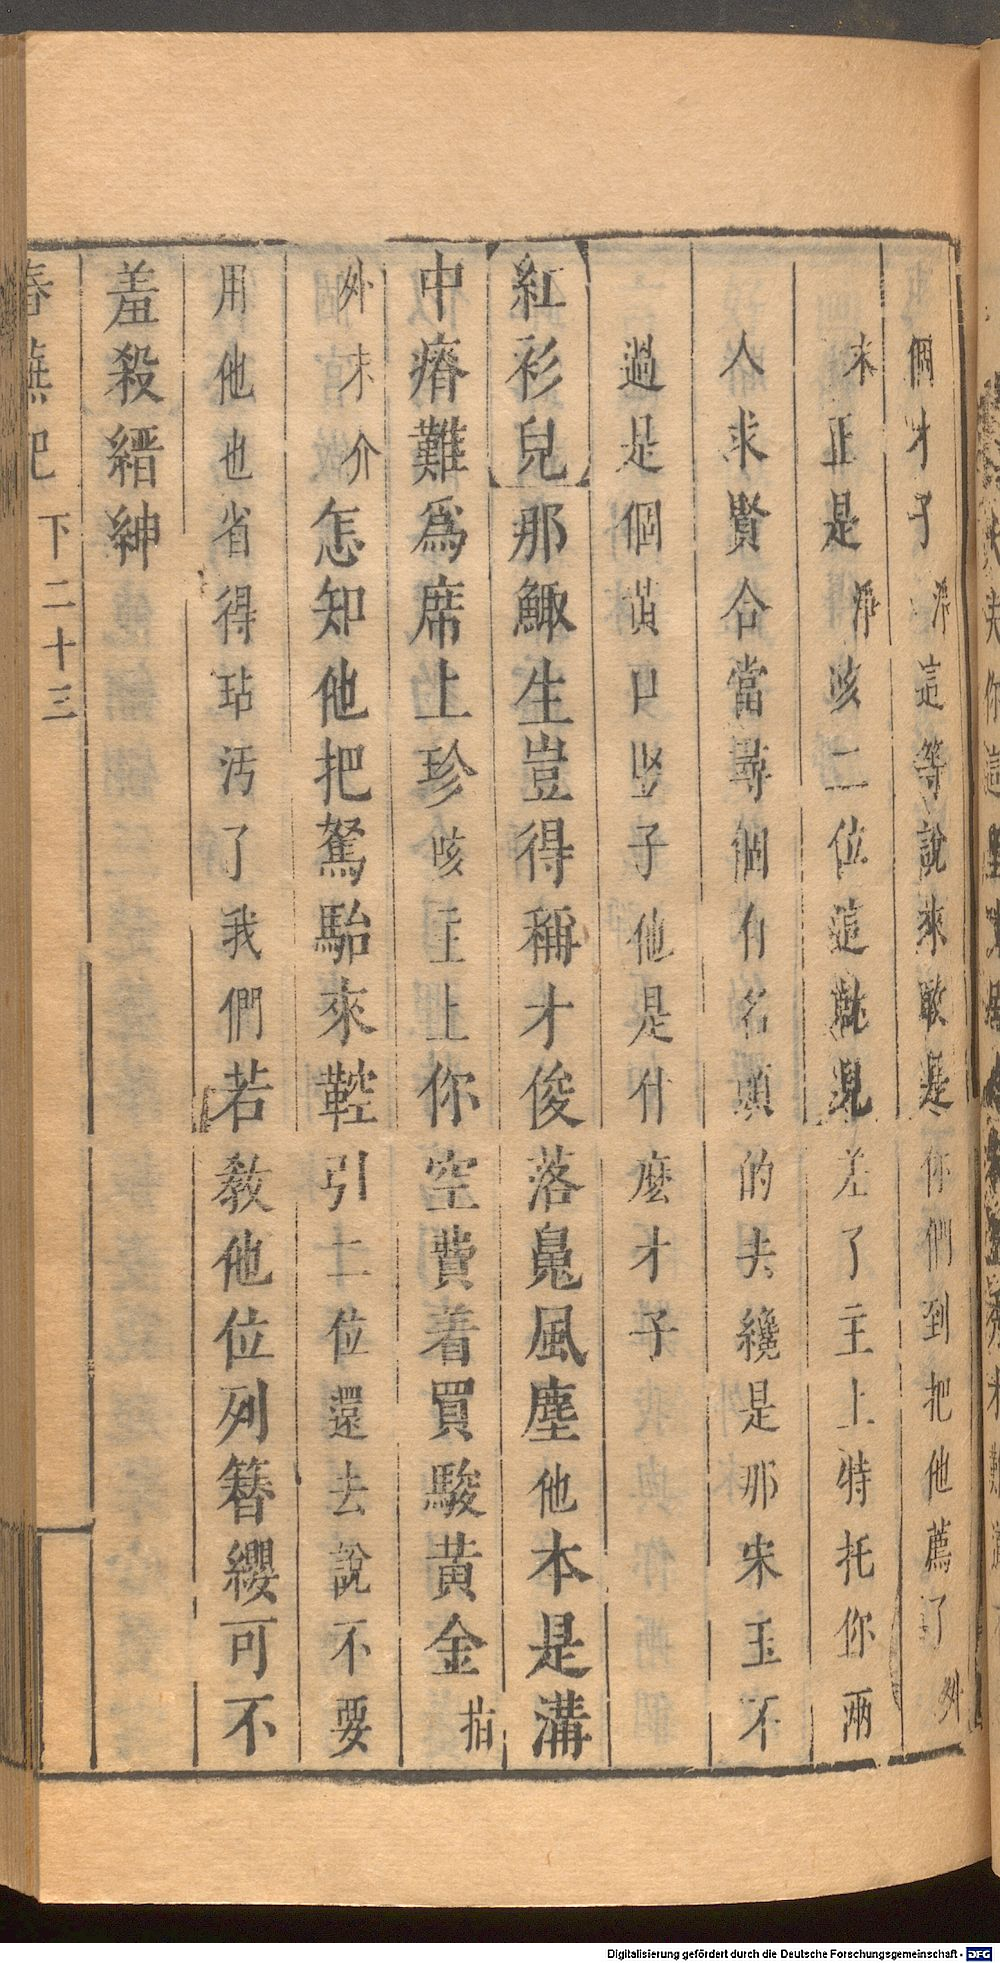 個才子淨這等說來敢是你們到把他薦了外
末正是淨咳二位這就見差了主上特托你兩
人求賢合當尋個有名頭的夫纔是那宋玉不
過是個黃口豎子他是什麼才子
紅衫兒那鯫生豈得稱才俊落魄風塵他本是溝
中瘠難爲席上珍咳主上你空費着買駿黃金指
外末介怎知他把駑駘來鞚引二位還去說不要
用他也省得玷污了我們若教他位列簪纓可不
羞殺縉紳
春蕪記 下二十三
Digitalisierung gefördert durch die Deutsche Forschungsgemeinschaft - DFG